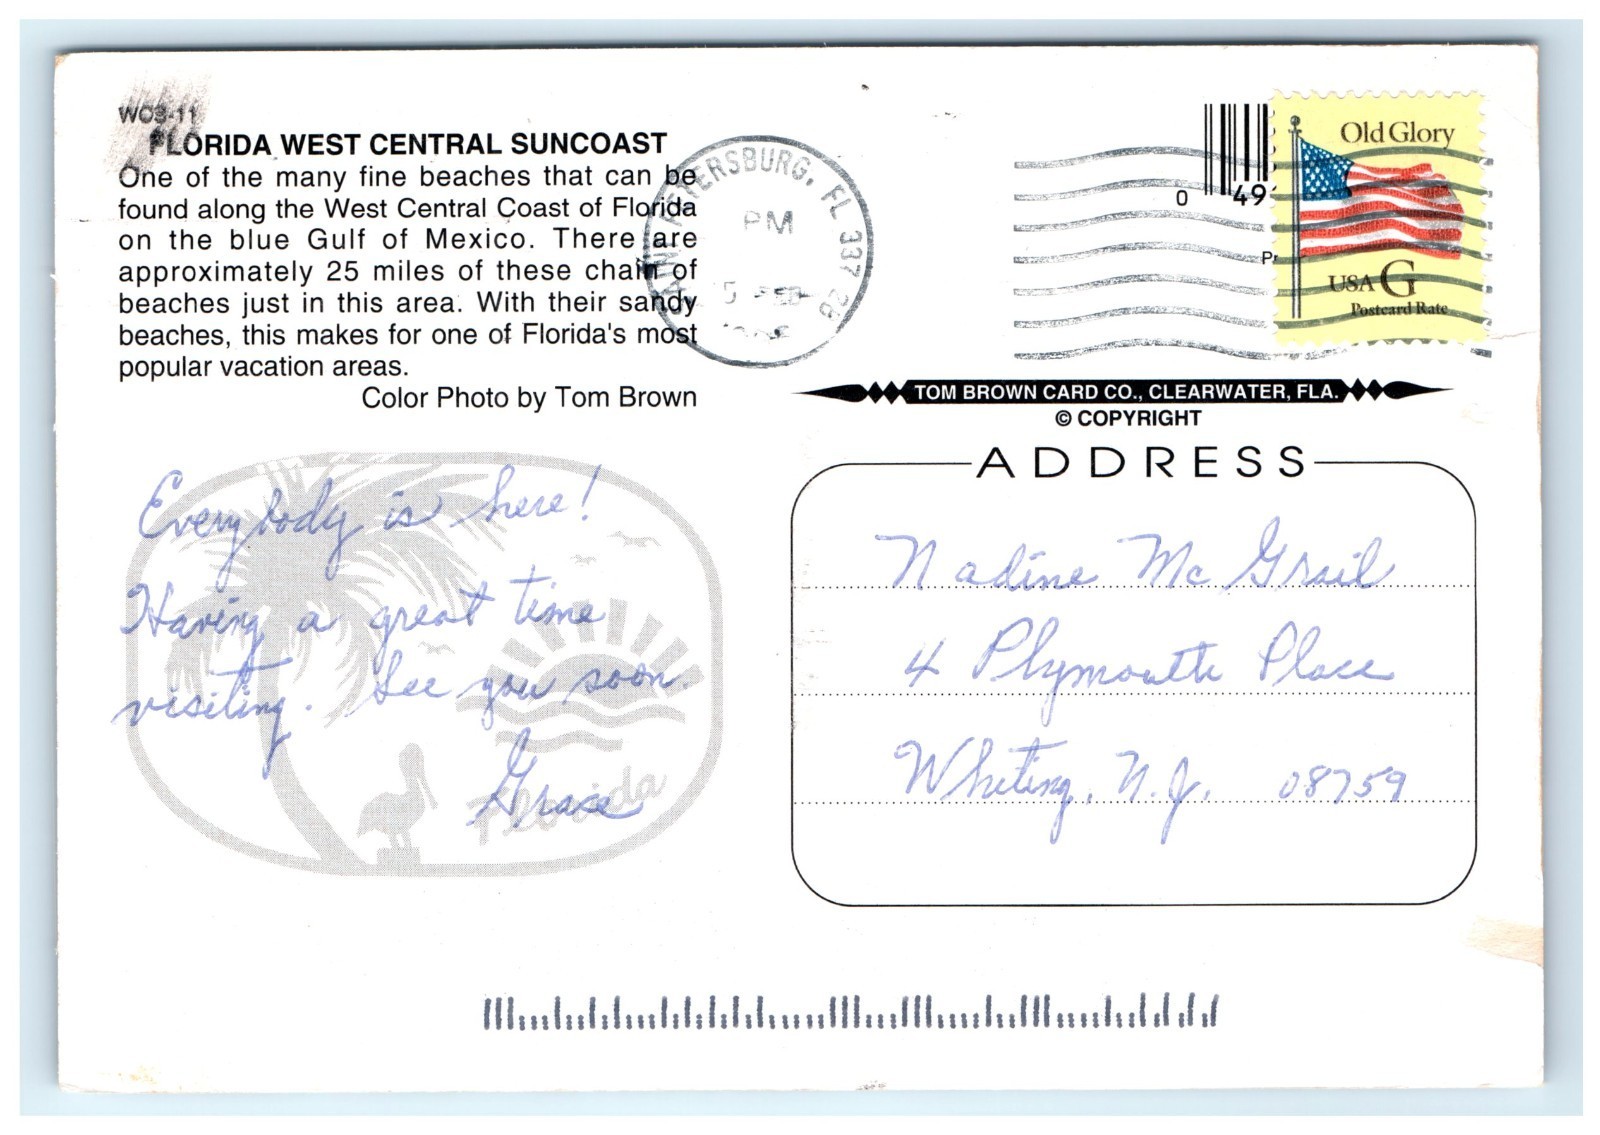 WCS-11
FLORIDA WEST CENTRAL SUNCOAST
One of the many fine beaches that can be
found along the West Central Coast of Florida
on the blue Gulf of Mexico. There are
approximately 25 miles of these chain of
beaches just in this area. With their sandy
beaches, this makes for one of Florida's most
popular vacation areas.
Color Photo by Tom Brown
SAINT PETERSBURG, FL 337 2B
PM
5
0 49
Old Glory
USA G
Postcard Rate
TOM BROWN CARD CO., CLEARWATER, FLA.
© COPYRIGHT
Everybody is here!
Having a great time
visiting. See you soon.
Grace
Florida
ADDRESS
Nadine Mc Grail
4 Plymouth Place
Whiting, N.J. 08759